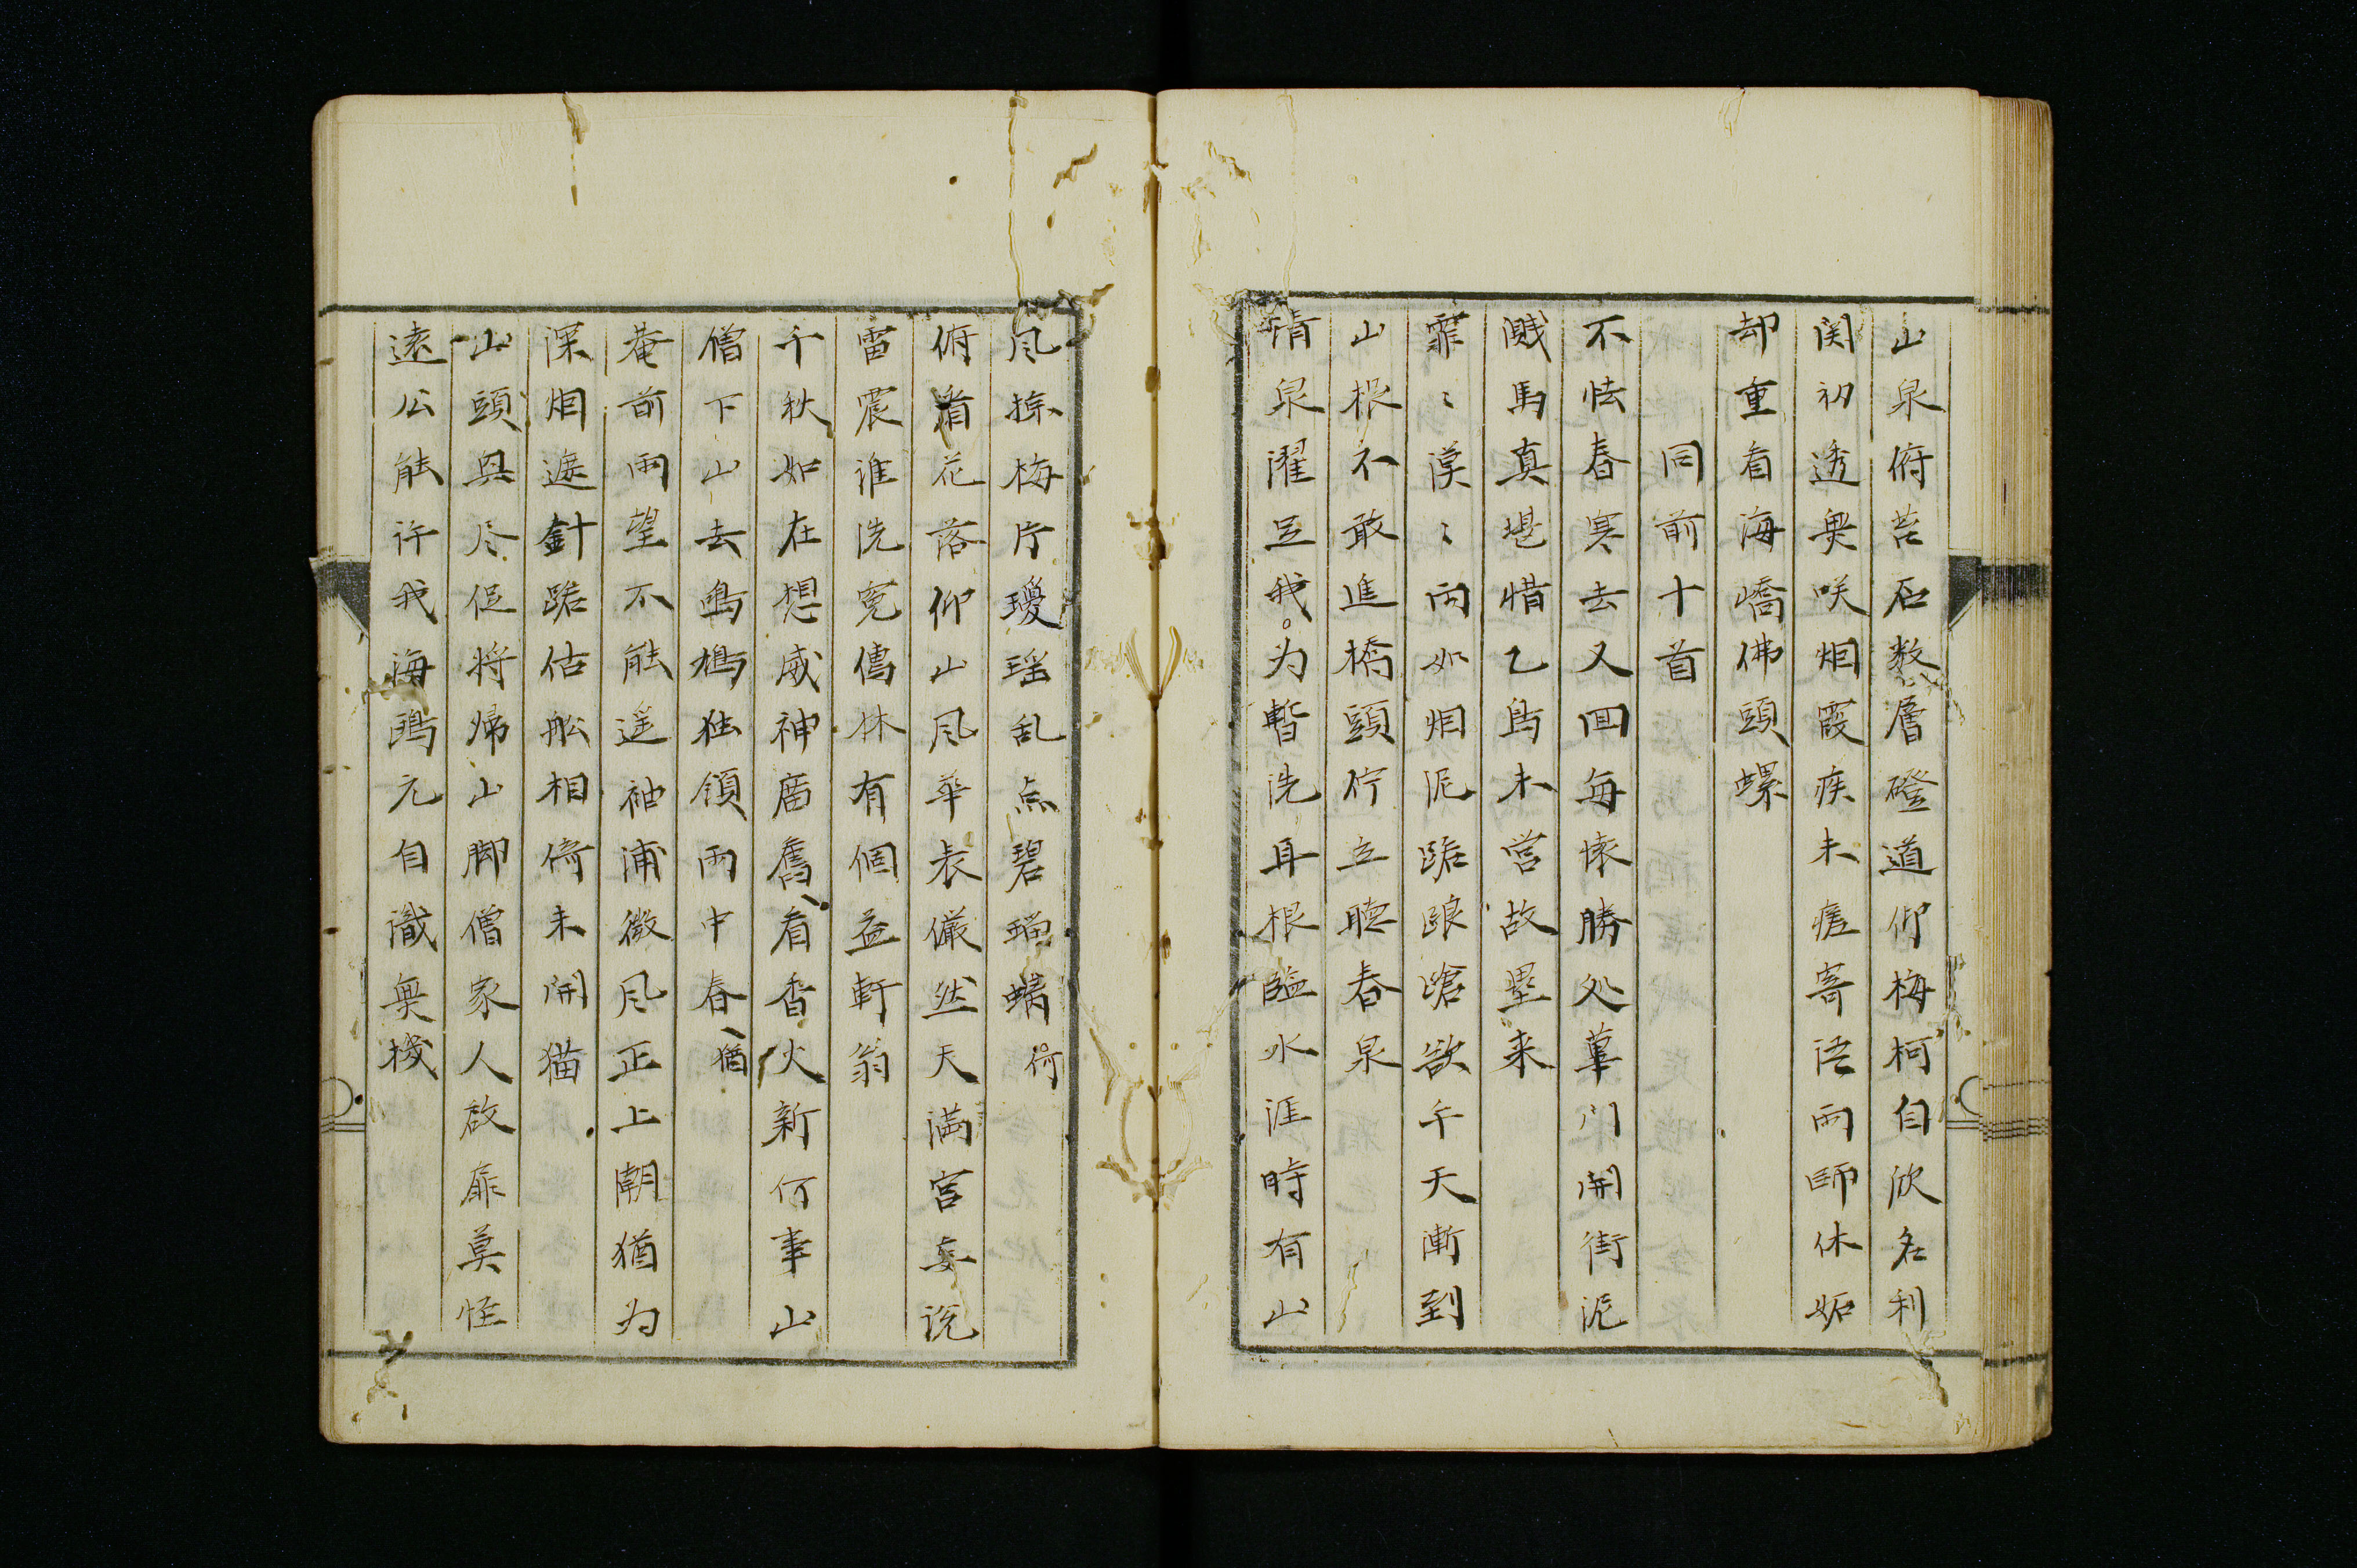 山泉俯苔石数層磴道仰梅柯自欣名利
関初透奥咲烟霞疾未痊寄語雨師休妬
却重看海嶠佛頭螺
同前十首
不怯春寒去又回毎懐勝処蓽門開街泥
賊馬真堪惜乙鳥未営故塁来
霏〻漠〻雨如烟泥路踉蹌欲午天漸到
山根不敢進橋頭佇立聴春泉
清泉濯足我為暫洗耳根臨水涯時有山
風掠梅片瓊瑶乱点碧瑠璃何
俯看花落仰山風華表儼然天満宮妄説
雷震誰洗冤儁林有個益軒翁
千秋如在想威神庿旧看香火新何事山
僧下山去烏鳩独領雨中春猶
菴前雨望不能遥袖浦微風正上朝猶為
深烟遮針路估船相倚未開猫
山頭興尽促将帰山脚僧家人啟扉莫怪
遠公能許我海鴎元自識奥機